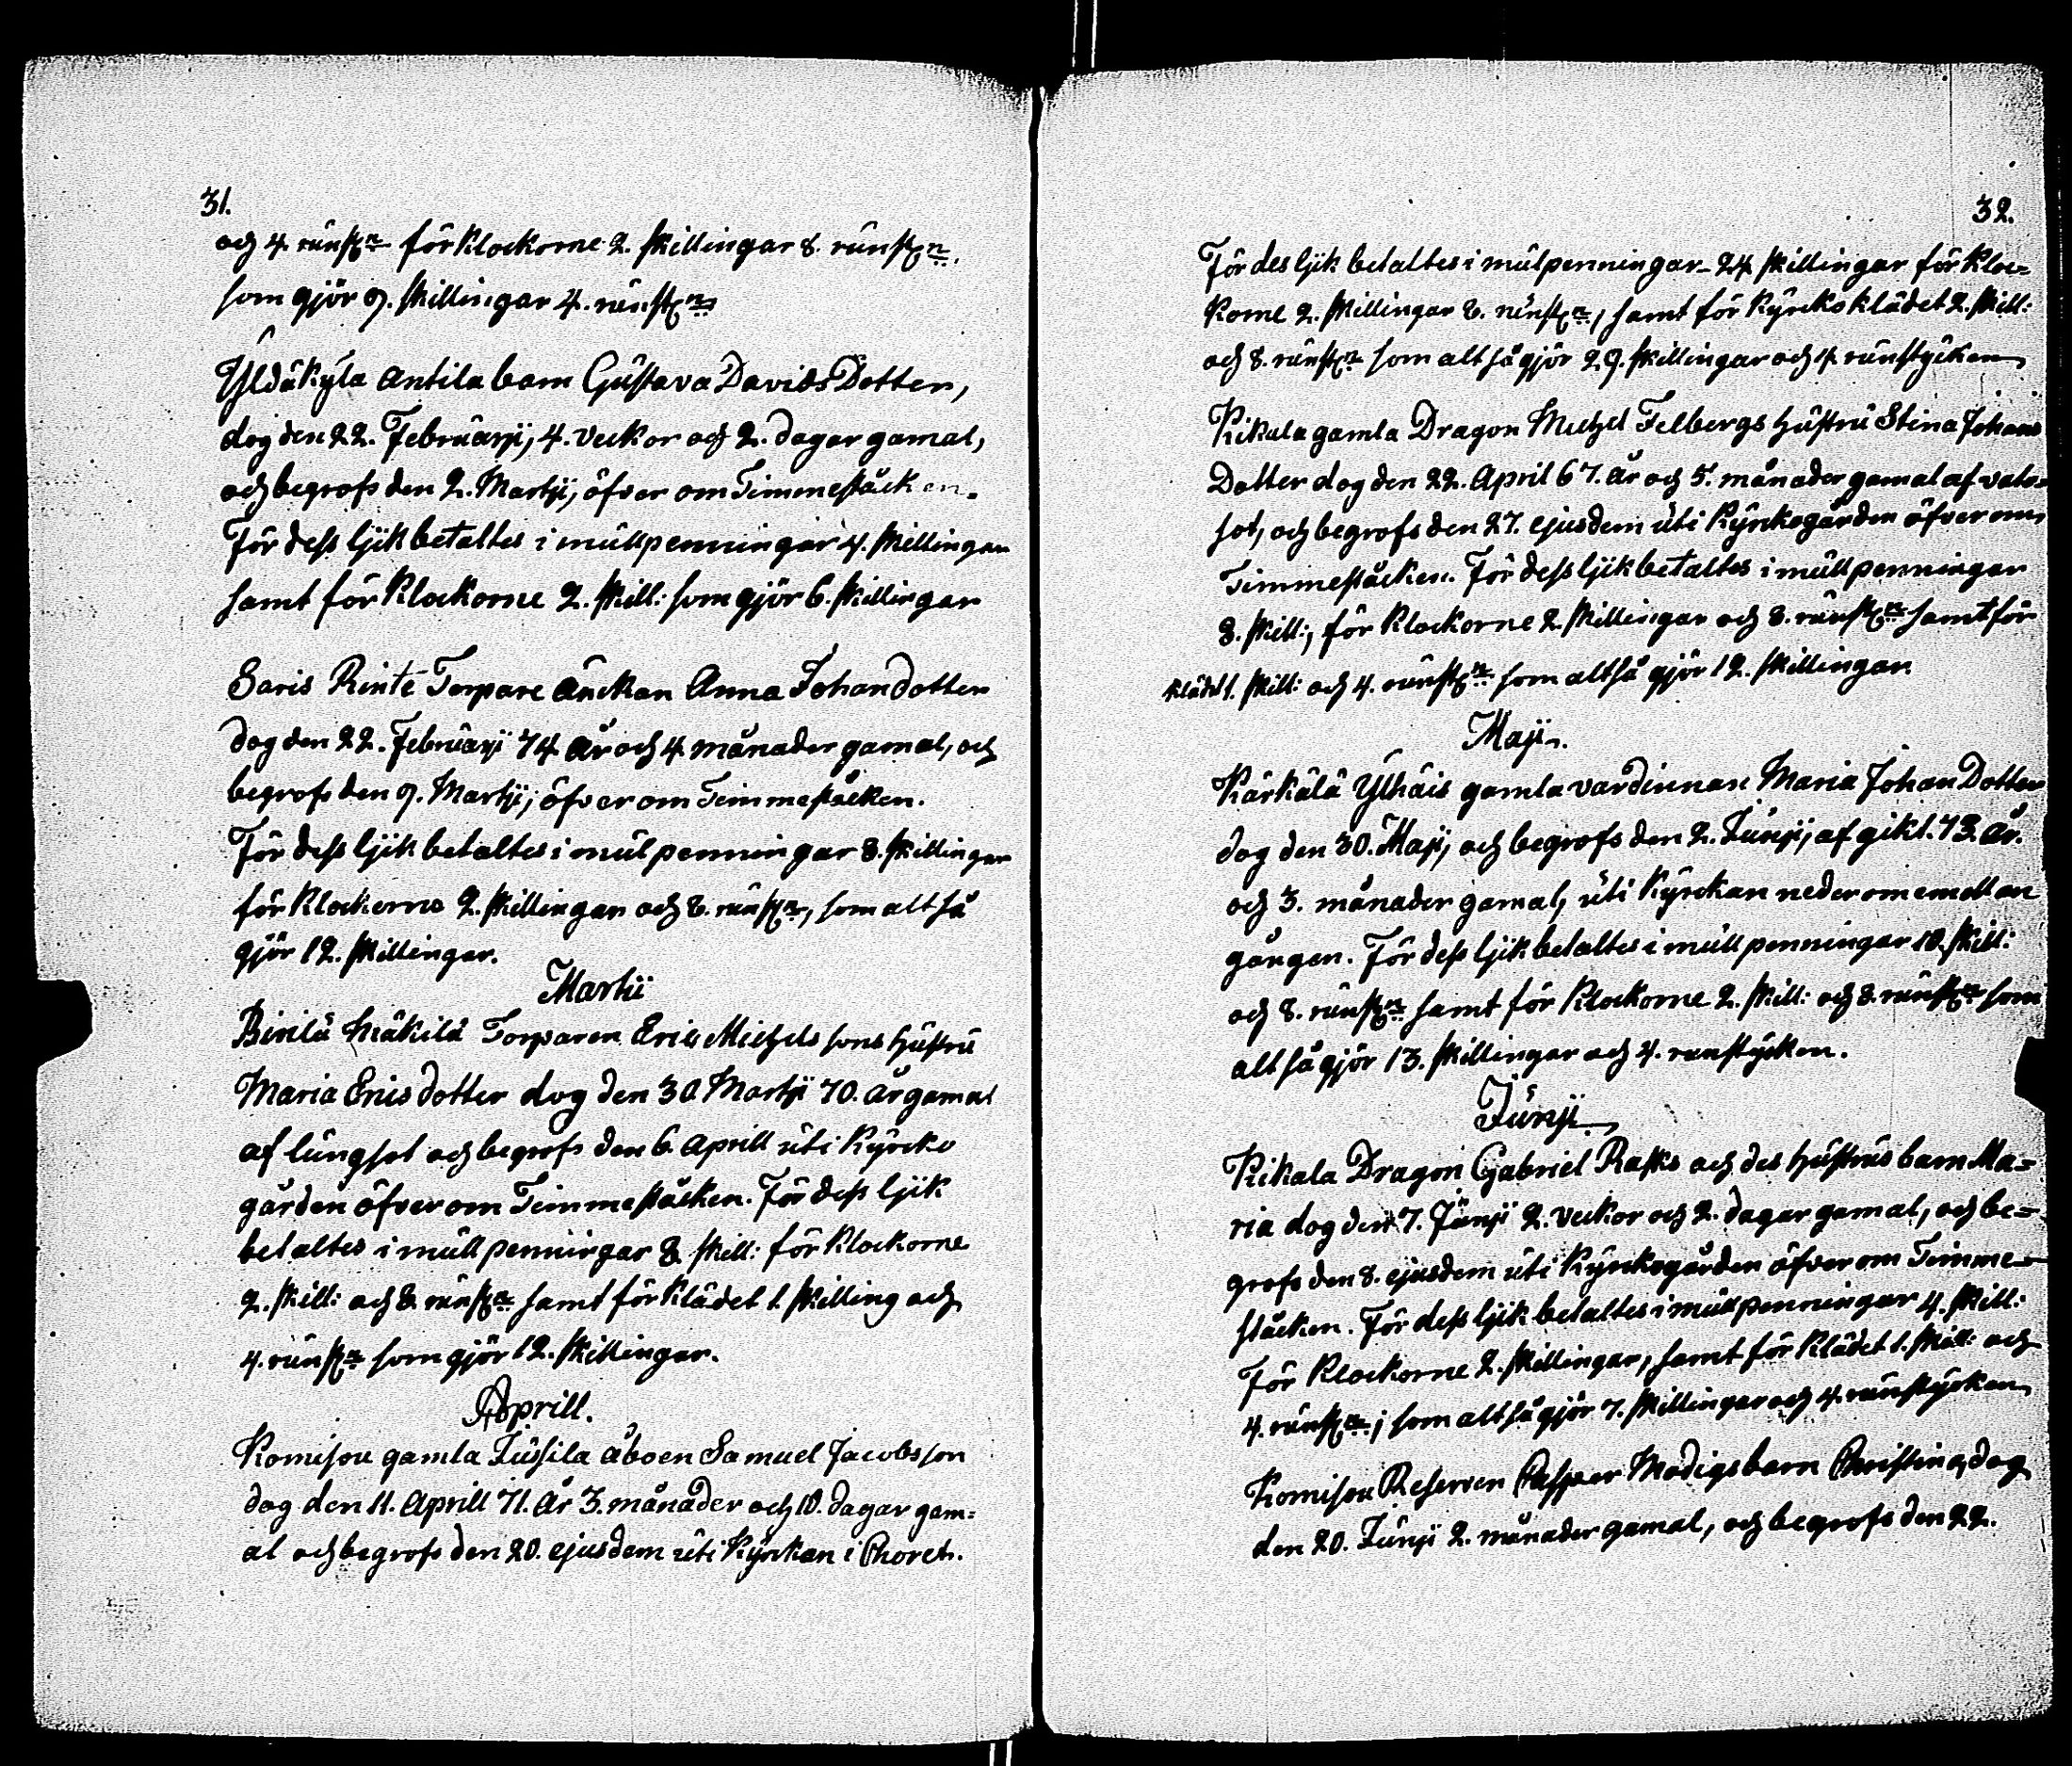 31.
och 4. runst:n för Klockorne 2. skillingar 8. runst:n,
som gjör 9. skillingar 4. runst:n
Yldäkylä Antila barn Gustava Davids Dotter,
dog den 22. Februarji, 4. veckor och 2. dagar gamal,
och begrofs den 2. Martji, öfver om Timmeståcken.
För dess ljik betaltes i mullpenningar 4. skillingar
samt för Klockorne 2. skill: som gjör 6. skillingar
Saris Rinte Torpare änckan Anna Johandotter
dog den 22. Februarji 74 år och 4 månader gamal, och
begrofs den 9. Martji, öfver om Timmeståcken.
För dess ljik betaltes i mulpenningar 8. skillingar
för Klockorne 2. skillingar och 8. runst:n, som altså
gjör 12. skillingar.
Martii
Birilä Mäkilä Torparen Eric Michels sons hustru
Maria Ericsdotter dog den 30. Martji 70. år gamal
af lungsot och begrofs den 6. Aprill uti Kyrcko
gården öfver om Timmeståcken. För dess ljik
betaltes i mullpenningar 8. skill: för Klockorne
2. skill: och 8. runst:n samt för klädet 1. skilling och
4. runst:n som gjör 12. skillingar.
Aprill.
Komisou gamla Jussila åboen Samuel Jacobsson
dog den 11. Aprill 71. år 3. månader och 10. dagar gam=
al och begrofs den 20. ejusdem uti Kyrckan i Choret.
32.
För des ljik betaltes i mulpenningar 24 skillingar för Kloc=
korne 2. skillingar 8. runst:n, samt för Kyrckoklädet 2. skill:
och 8. runst:n som altså gjör 29. skillingar och 4. runstycken
Kikala gamla Dragon Michel Felbergs hustru Stina Johans
Dotter dog den 22. April 67. år och 5. månader gamal af vatu=
sot, och begrofs den 27. ejusdem uti Kyrckogården öfver om
Timmeståcken. För dess ljik betaltes i mullpenningar
8. skill:, för Klockorne 2. skillingar och 8. runst:n samt för
klädet 1. skill: och 4. runst:n som altså gjör 12. skillingar.
Maji.
Kärkälä Ylhäis gamla värdinnan Maria Johan Dotter
dog den 30. Maji, och begrofs den 2. Junji, af gikt. 73. år.
och 3. månader gamal, uti Kyrckan neder om emellan
gången. För dess ljik betaltes i mullpenningar 10. skill:
och 8. runst:n samt för Klockorne 2. skill: och 8. runst:n som
altså gjör 13. skillingar och 4. runstycken.
Junji
Kikala Dragon Gabriel Rasks och des hustrus barn Ma=
ria dog den 7. Junji 2. veckor och 2. dagar gamal, och be=
grofs den 8. ejusdem uti Kyrckogården öfver om Timme
ståcken. För dess ljik betaltes i mullpenningar 4. skill:
För Klockorne 2. skillingar, samt för klädet 1. skill: och
4. runst:n; som altså gjör 7. skillingar och 4. runstycken
Komisou Reserven Casper Modigs barn Christina, dog
den 20. Junji 2. månader gamal, och begrofs den 22.